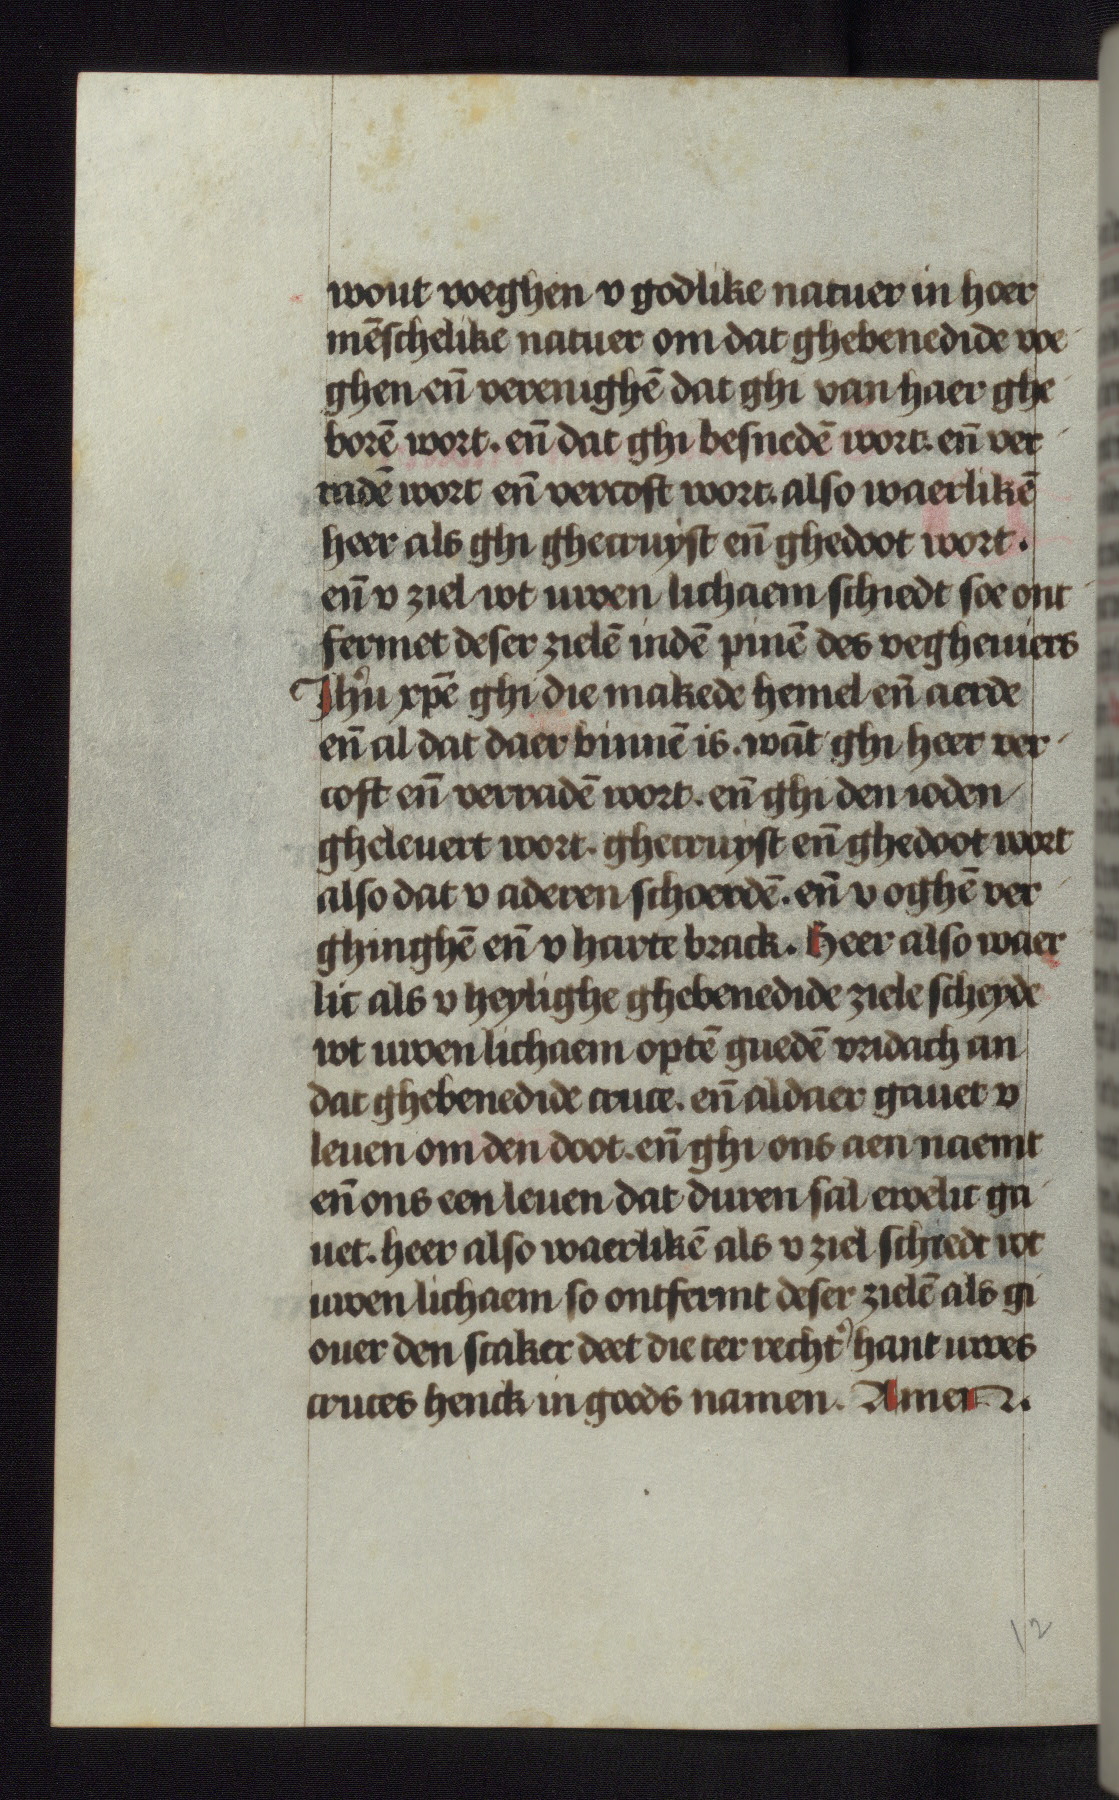 wout voeghen v godlike natuer in hoer
mēschelike natuer om dat ghebenedide voe
ghen en̄ verenighē dat ghi van haer ghe
borē wort. en̄ dat ghi besnedē wort. en̄ ver
radē wort en̄ vercoft wort. also waerlikē
heer als ghi ghecruyst en̄ ghedoot wort.
en̄ v ziel wt uwen lichaem schiedt soe ont
fermet deser zielē indē pinē des vegheuiers
Ihū xpē ghi die makede hemel en̄ aerde
en̄ al dat daer binnē is. wāt ghi heer ver
coft en̄ verradē wort. en̄ ghi den ioden
gheleuert wort. ghecruyst en̄ ghedoot wort
also dat v aderen schoerdē. en̄ v oghē ver
ghinghē en̄ v harte brack. Heer also waer
lic als v heylighe ghebenedide ziele scheyde
wt uwen lichaem optē guedē vridach an
dat ghebenedide cruce. en̄ aldaer gauet v
leuen om den doot. en̄ ghi ons aen naemt
en̄ ons een leuen dat duren sal ewelic ga
uet. heer also waerlikē als v ziel schiedt wt
uwen lichaem so ontfermt deser zielē als gi
ouer den scaker deet die ter recht' hant uwes
cruces henck in goods namen. Amen.
12